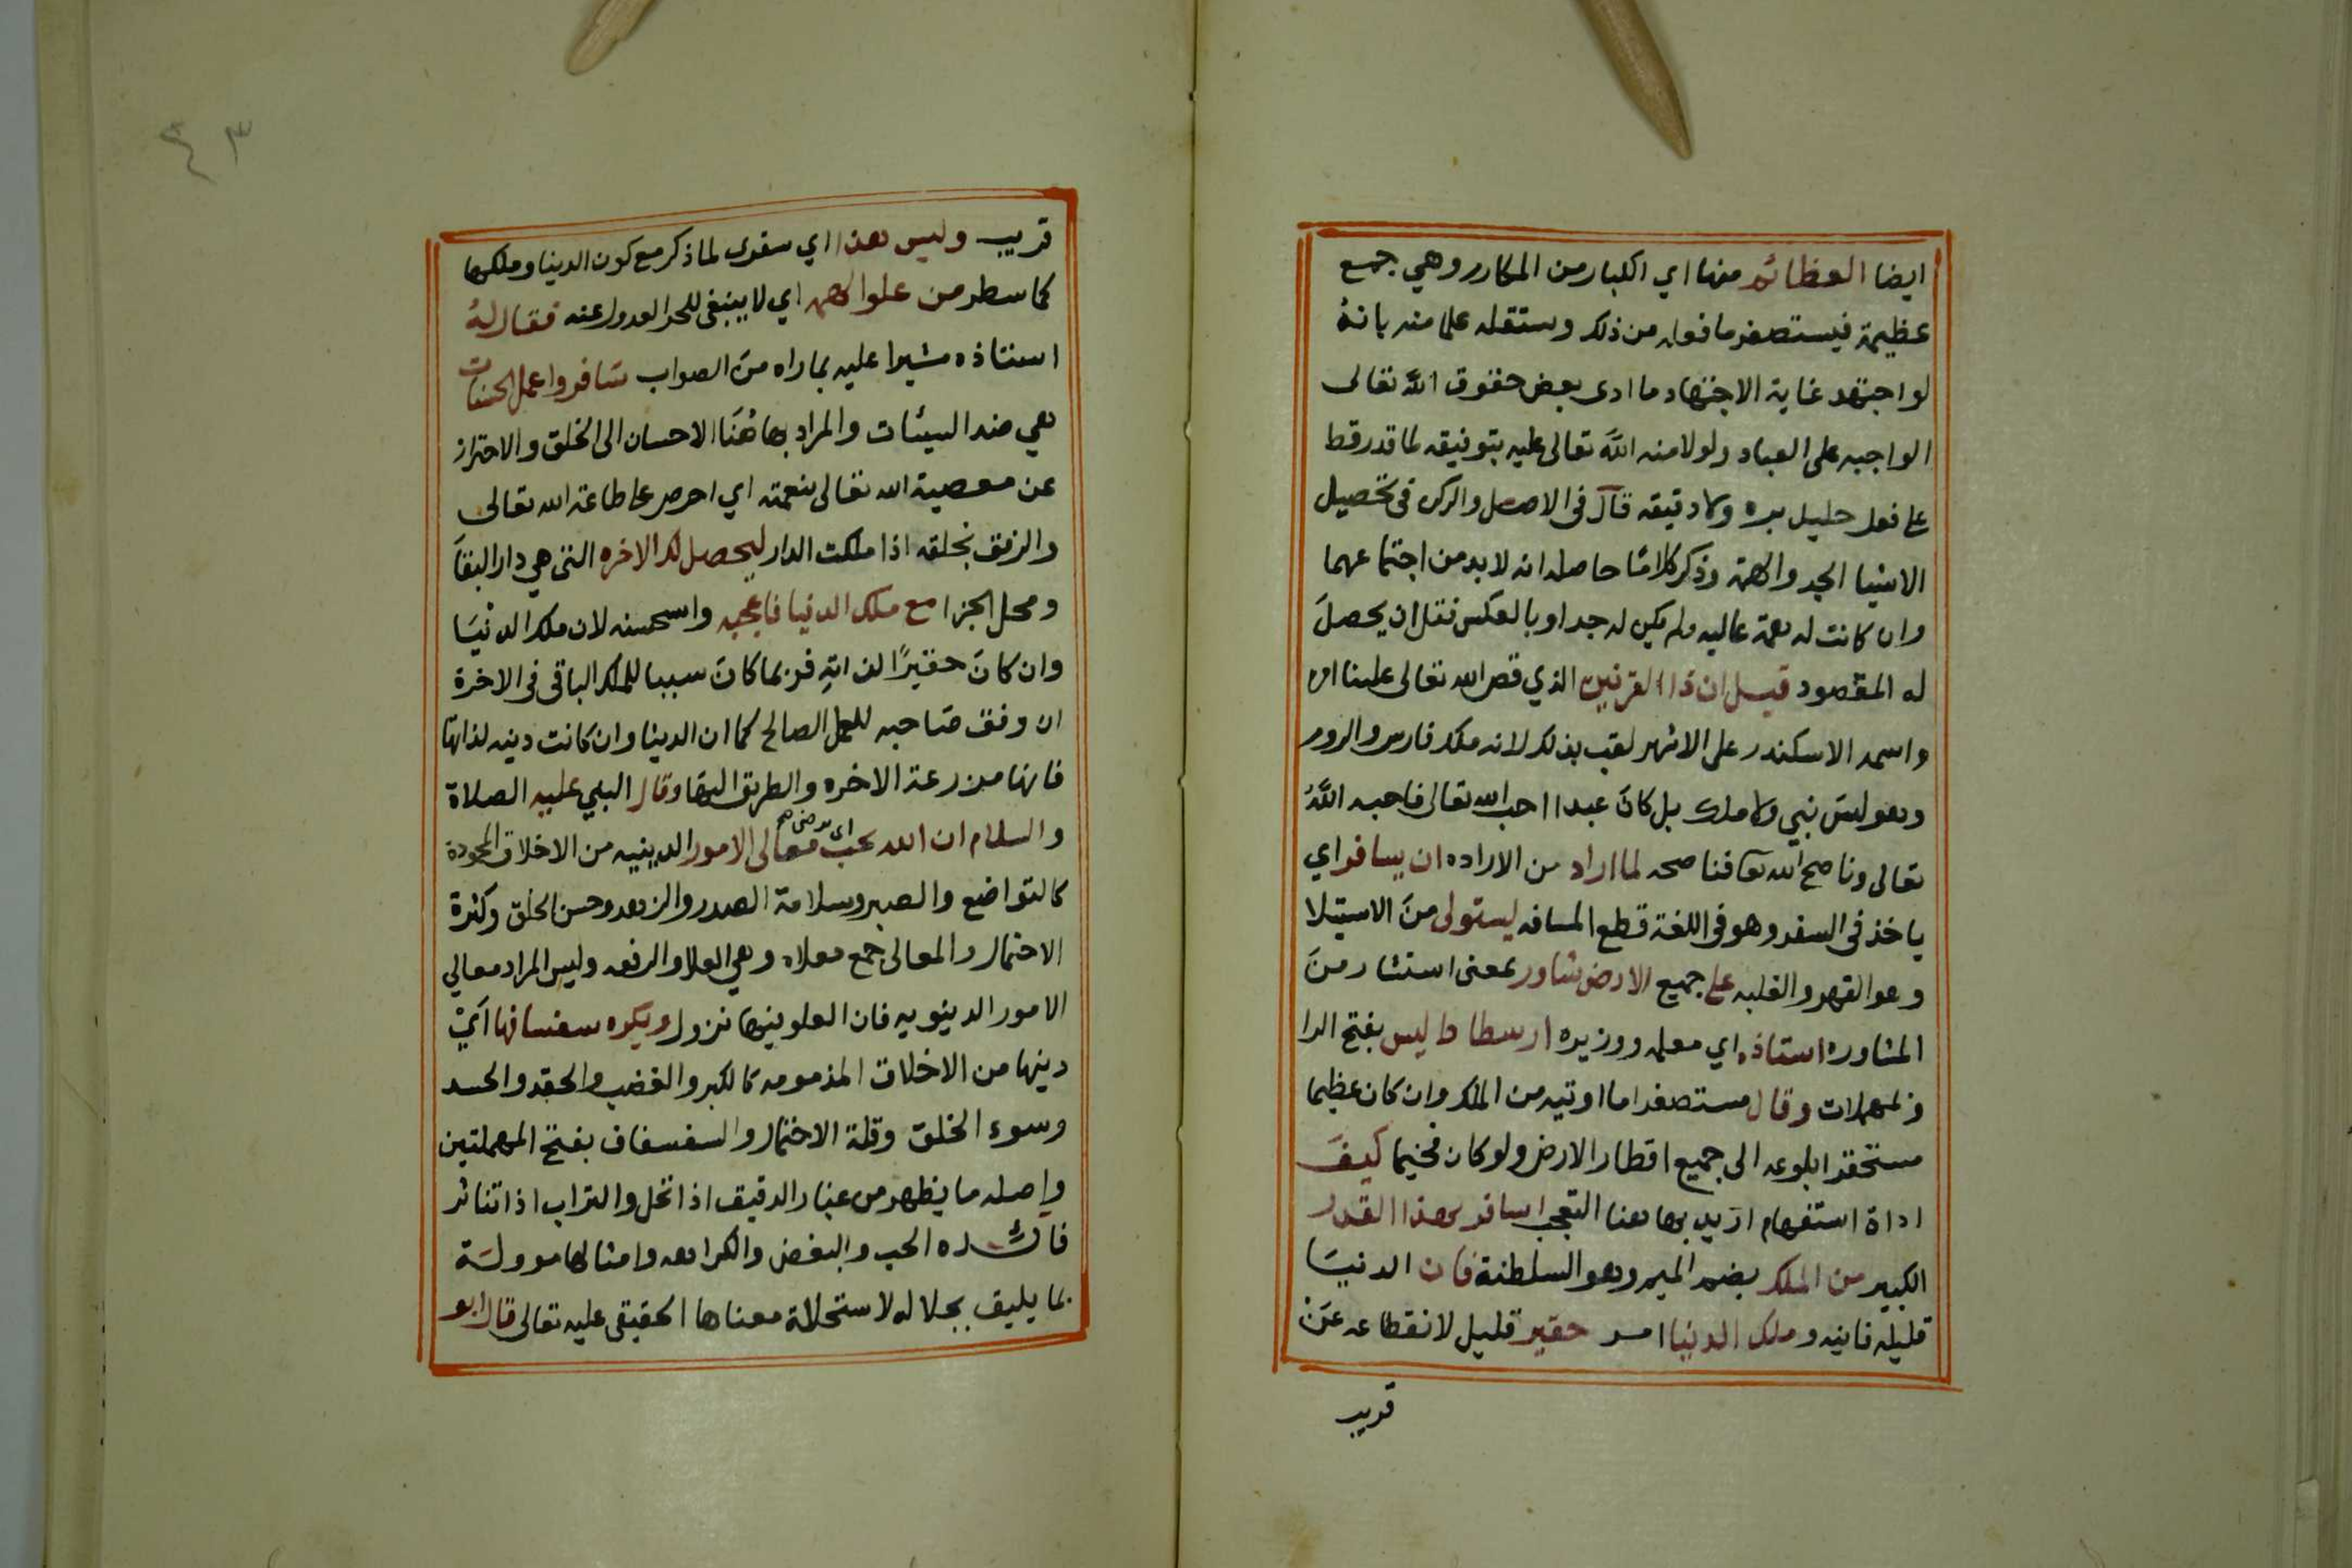 ايضا العظائم منها اي الكبار من المكارم وهي جمع
عظيمة فيستصغر ما فعله من ذلك وستقله علما منه بانه
لو اجتهد غاية الاجتهاد ما ادى بعض حقوق الله تعالى
الواجبه على العباد ولولا منه الله تعالى عليه بتوفيقه لما قدر قط
على فعل جليل بره ولا دقيقه قال فى الاصل والركن فى تحصيل
الاشيا الجد والهمة وذكر كلامًا حاصله انه لا بد من اجتماعهما
وان كانت له همة عاليه ولم يكن له جد او بالعكس فقل ان يحصل
له المقصود قيل ان ذا القرنين الذي قص الله تعالى علينا امره
واسمه الاسكندر على الاشهر لقب بذلك لانه ملك فارس والروم
وهو ليس نبي ولا ملك بل كان عبدا احب الله تعالى فاحبه الله
تعالى وناصح الله تعا فناصحه لما اراد من الاراده ان يسافر اي
ياخذ فى السفر وهو فى اللغة قطع المسافه ليستولى من الاستيلا
وهو القهر والغلبه على جميع الارض شاور بمعنى استشار من
المشاوره استاذه اي معلمه ووزيره ارسطاطاليس بفتح الرا
فالمهملات وقال مستصغرا ما اوتيه من الملك وان كان عظيما
مستحقرا بلوغه الى جميع اقطار الارض ولو كان فخيما كيف
اداة استفهام اريد بها هنا التعجب اسافر بهذا القدر
الكبير من الملك بضم الميم وهو السلطنة فان الدنيا
قليله فانيه وملك الدنيا امر حقير قليل لانقطاعه عن
قريب
٤٣
قريب وليس هذا اي سفرى لما ذكر مع كون الدنيا وملكها
كما سطر من علو الهمه اي لا ينبغى للحر العدول عنه فقال له
استاذه مشيرا عليه بما راه من الصواب سافر واعمل الحسنات
هي ضد السيئات والمراد بها هُنَا الاحسان الى الخلق والاحتراز
عن معصية الله تعالى بنعمته اي احرص على طاعة الله تعالى
والرفق بخلقه اذا ملكت الدار ليحصل لك الاخره التى هي دار البقا
ومحل الجزا مع ملك الدنيا فاعجبه واستحسنه لان ملك الدنيا
وان كان حقيرًا لذاته فربما كان سببا للملك الباقى فى الاخرة
ان وفق صاحبه للعمل الصالح كما ان الدنيا وان كانت دنيه لذاتها
فانها مزرعة الاخره والطريق اليها وقال النبي عليه الصلاة
والسلام ان الله يحب اى يرضى معالى الامور الدينيه من الاخلاق المحمودة
كالتواضع والصبر وسلامة الصدر والزهد وحسن الخلق وكثرة
الاحتمال والمعالى جمع معلاه وهي العلا والرفعه وليس المراد معالي
الامور الدنيويه فان العلو فيها نزول ويكره سفسافها اي
دينها من الاخلاق المذمومه كالكبر والغضب والحقد والحسد
وسوء الخلق وقلة الاحتمال والسفساف بفتح المهملتين
واصله ما يظهر من غبار الدقيق اذا نخل والتراب اذا تناثر
فائده الحب والبغض والكراهه وامثالها موولة
بما يليق بجلاله لاستحالة معناها الحقيقى عليه تعالى قال ابو